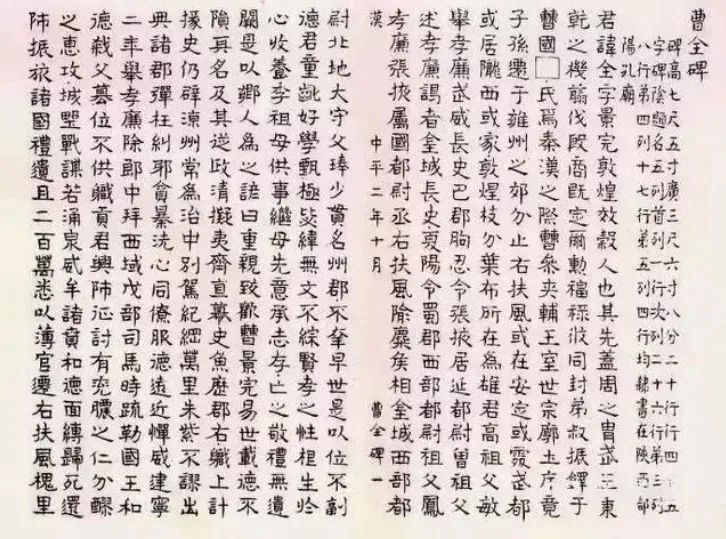 曹全碑
碑高七尺五寸廣三尺六寸八分二十行行四十五
字碑陰題名五列首列一行次列二十六行第三列
八行第四列十七行第五列四行均隸書在陝西郃
陽孔廟
君諱全字景完敦煌效穀人也其先蓋周之冑武王秉
乾之機翦伐殷商既定爾勳福祿攸同封弟叔振鐸于
曹國□氏焉秦漢之際曹參夾輔王室世宗廓土斥竟
子孫遷于雍州之郊分止右扶風或在安定或處武都
或居隴西或家敦煌枝分葉布所在為雄君高祖父敏
舉孝廉武威長史巴郡朐忍令張掖居延都尉曾祖父
述孝廉謁者金城長史夏陽令蜀郡西部都尉祖父鳳
孝廉張掖屬國都尉丞右扶風隃麋侯相金城西部都
漢 中平二年十月 曹全碑一
尉北地大守父琫少貫名州郡不幸早世是以位不副
德君童齔好學甄極毖緯無文不綜賢孝之性根生於
心收養季祖母供事繼母先意承志存亡之敬禮無遺
闕是以鄉人為之諺曰重親致歡曹景完易世載德不
隕其名及其從政清擬夷齊直慕史魚歷郡右職上計
掾史仍辟涼州常為治中別駕紀綱萬里朱紫不謬出
典諸郡彈枉糾邪貪暴洗心同僚服德遠近憚威建寧
二年舉孝廉除郎中拜西域戊部司馬時疏勒國王和
德弒父篡位不供職貢君興師征討有兗膿之仁分醪
之惠攻城野戰謀若涌泉威牟諸賁和德面縛歸死還
師振旅諸國禮遺且二百萬悉以薄官遷右扶風槐里